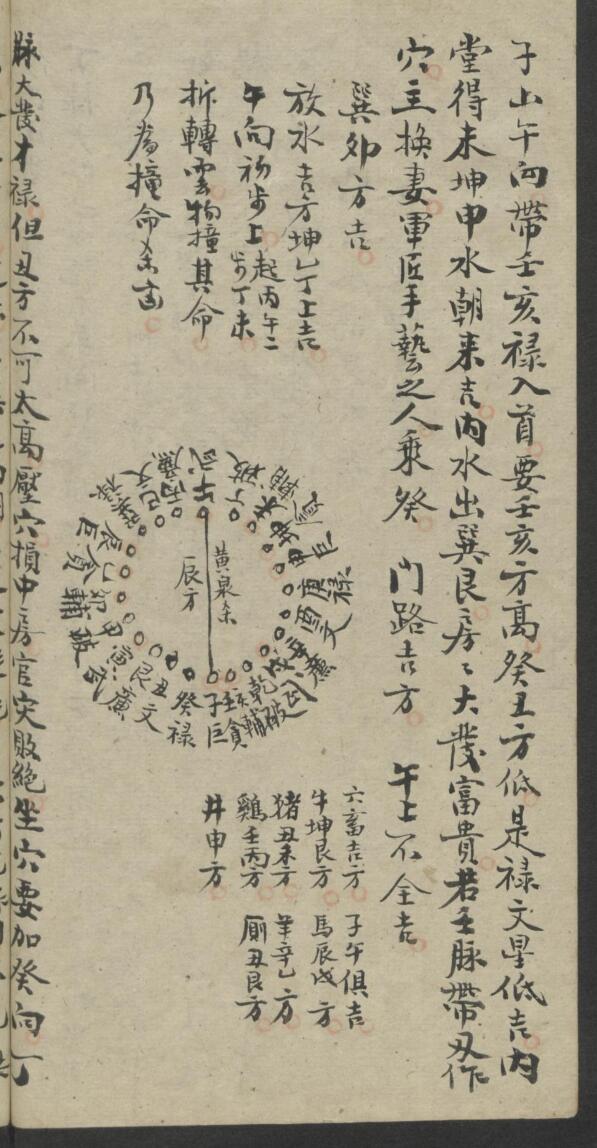 子山午向帶壬亥禄入首要壬亥方高癸丑方低是禄文星低吉内
堂得未坤申水朝来吉内水出巽艮房〻大發富貴若壬脉帶丑作
穴主換妻軍匠手藝之人乘癸 門路吉方 午上不全吉
巽卯方吉
放水吉方坤乙丁上吉
午向初步上起丙午二步丁未
拆轉雲物撞其命
乃為撞命杀凶
黄泉杀
辰方
子巨
癸禄
丑文
艮廉
寅武
甲破
卯輔
乙貪
辰巨
巽禄
巳文
丙廉
午武
丁破
未輔
坤貪
申巨
庚禄
酉文
辛廉
戌武
乾破
亥輔
壬貪
六畜吉方 子午俱吉
牛坤艮方 馬辰戌方
猪丑未方 羊辛乙方
鷄壬丙方 厠丑艮方
井申方
脉大發才禄但丑方不可太高壓穴損中房官灾敗絶坐穴要加癸向丁